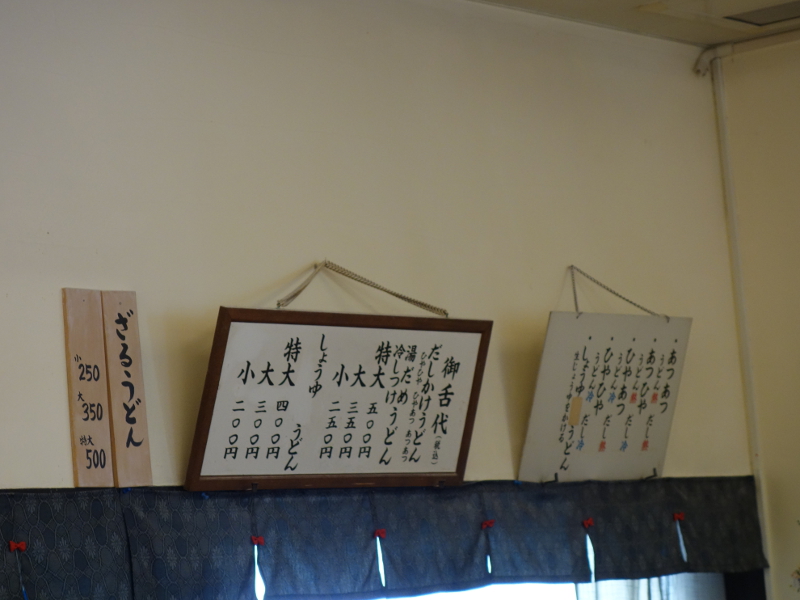 御舌代(税込)
だしかけうどん
ひやひや ひやあつ あつあつ
湯だめうどん
冷しつけうどん
特大 五〇〇円
大 三五〇円
小 二五〇円
しょうゆうどん
特大 四〇〇円
大 三〇〇円
小 二〇〇円
ざるうどん
小 250
大 350
特大 500
・あつあつ
うどん熱 だし熱
・あつひや
うどん熱 だし冷
・ひやあつ
うどん冷 だし熱
・ひやひや
うどん冷 だし冷
・しょうゆうどん
生じょうゆをかける